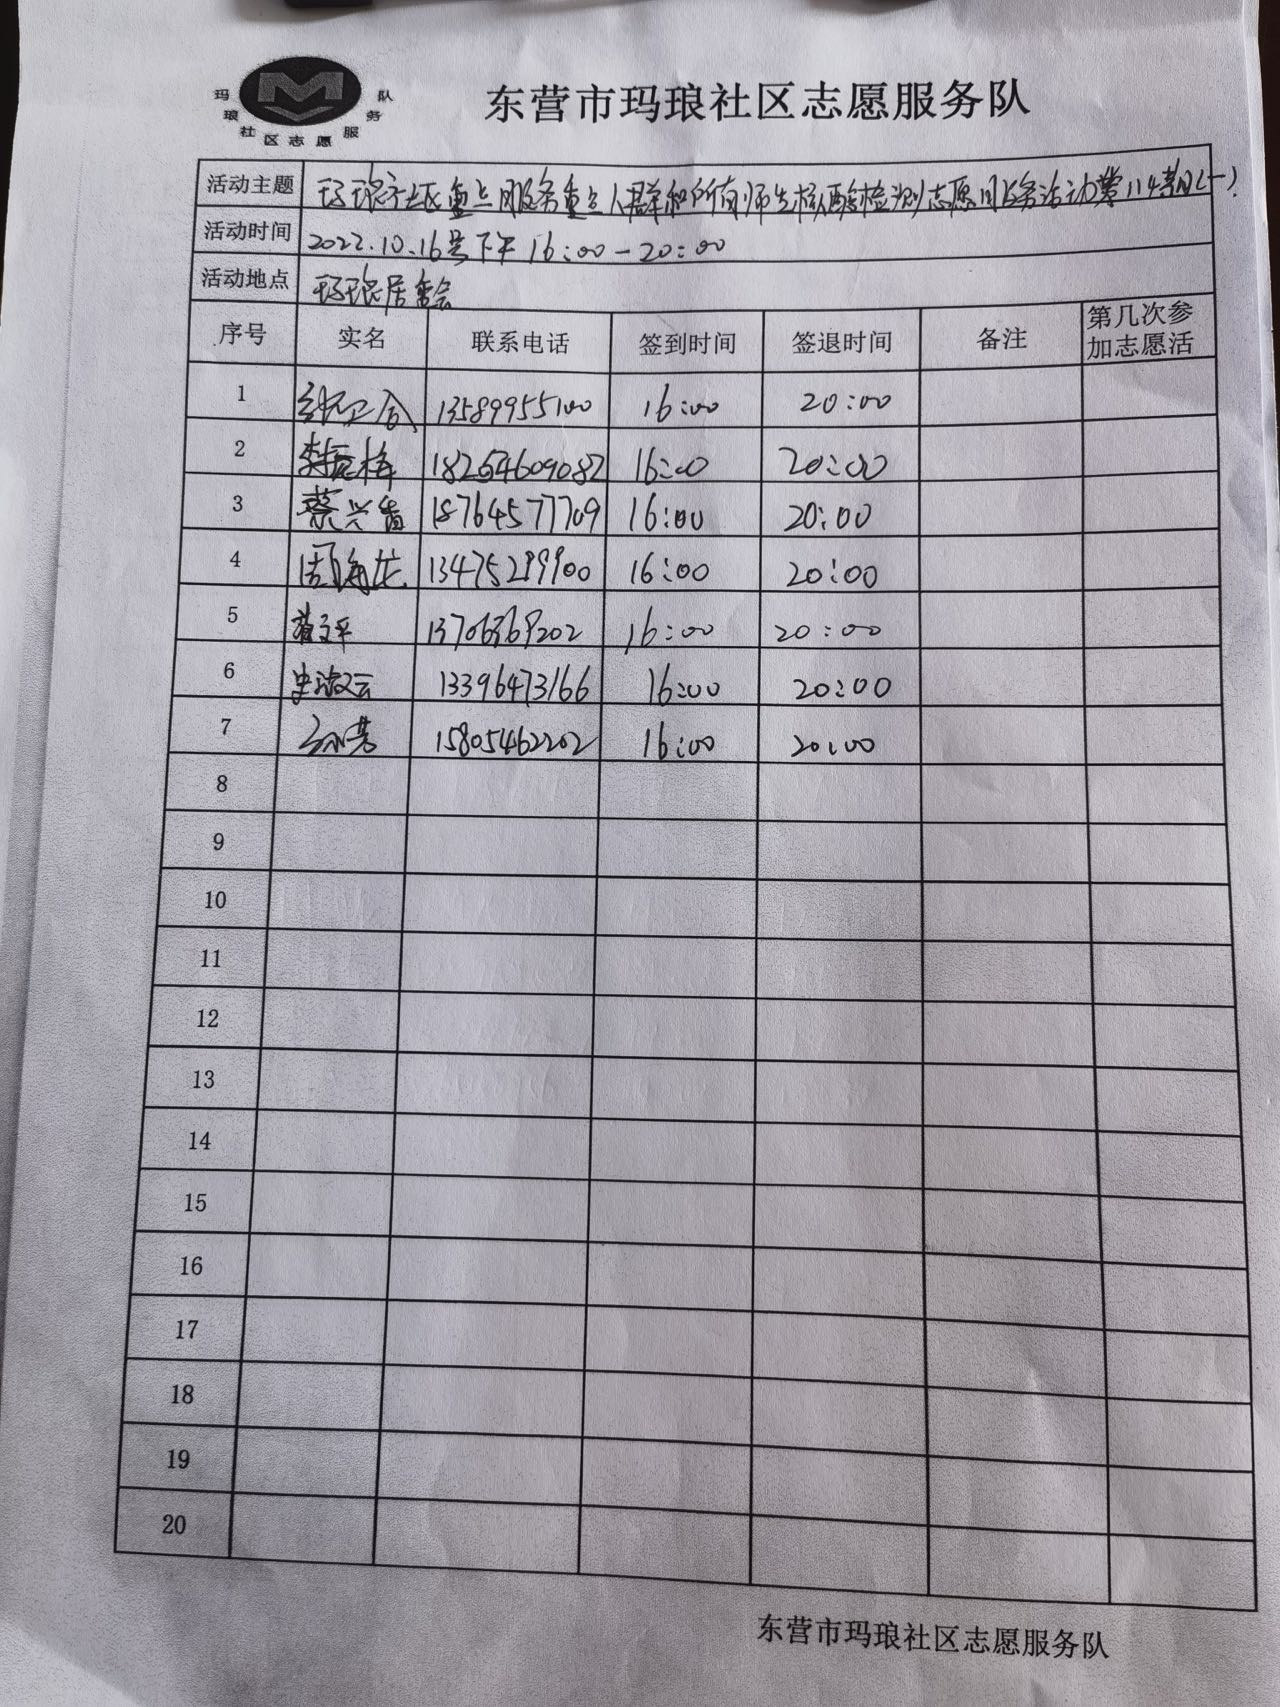 玛琅社区志愿服务队
东营市玛琅社区志愿服务队
活动主题 玛琅社区重点服务重点人群和所有师生核酸检测志愿服务活动第114期(一)
活动时间 2022.10.16号下午 16:00-20:00
活动地点 玛琅居委会
序号 实名 联系电话 签到时间 签退时间 备注 第几次参加志愿活
1 13589955100 16:00 20:00
2 18254609082 16:00 20:00
3 蔡兴香 18764577709 16:00 20:00
4 13475299900 16:00 20:00
5 13706369202 16:00 20:00
6 史淑云 13396473166 16:00 20:00
7 15805462202 16:00 20:00
8
9
10
11
12
13
14
15
16
17
18
19
20
东营市玛琅社区志愿服务队